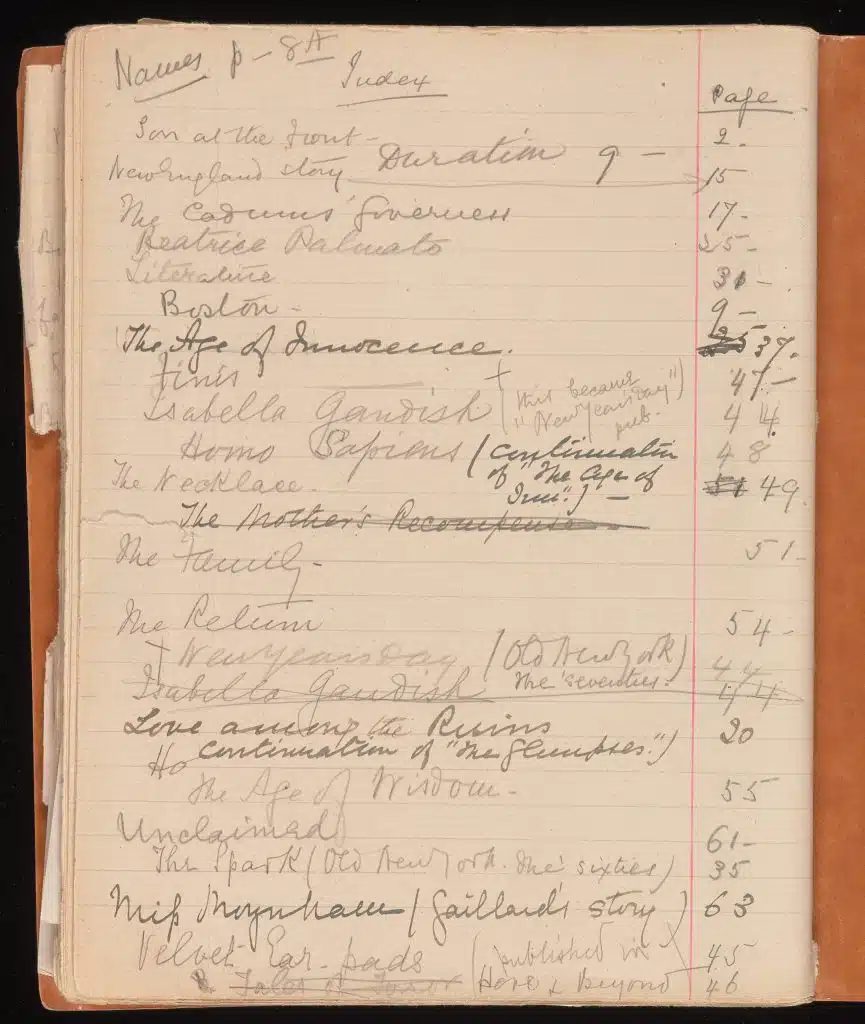 Names p - 8A
Index
Page
Son at the Front - 2.
New England story Duration 9 - 15
The Cadmus' Governess 17-
Beatrice Palmato 25-
Literature 31-
Boston - 9-
The Age of Innocence. 35 37.
Finis 47-
Isabella Gandish + (this became "New Year's Day") pub. 44.
Homo Sapiens (continuation of "The Age of Inn".) - 48
The Necklace. 51 49.
The Mother's Recompense
The Family - 51-
The Return 54-
+ New Year's Day (Old New York) 44
Isabella Gandish The 'seventies. 44
Love among the Ruins 20
Ho continuation of "The Glimpses".)
The Age of Wisdom - 55
Unclaimed 61-
The Spark (Old New York. The 'sixties) 35
Miss Moynham (Gaillard's story) 63
Velvet Ear-pads (published in 45
Tales of Here & Beyond 46